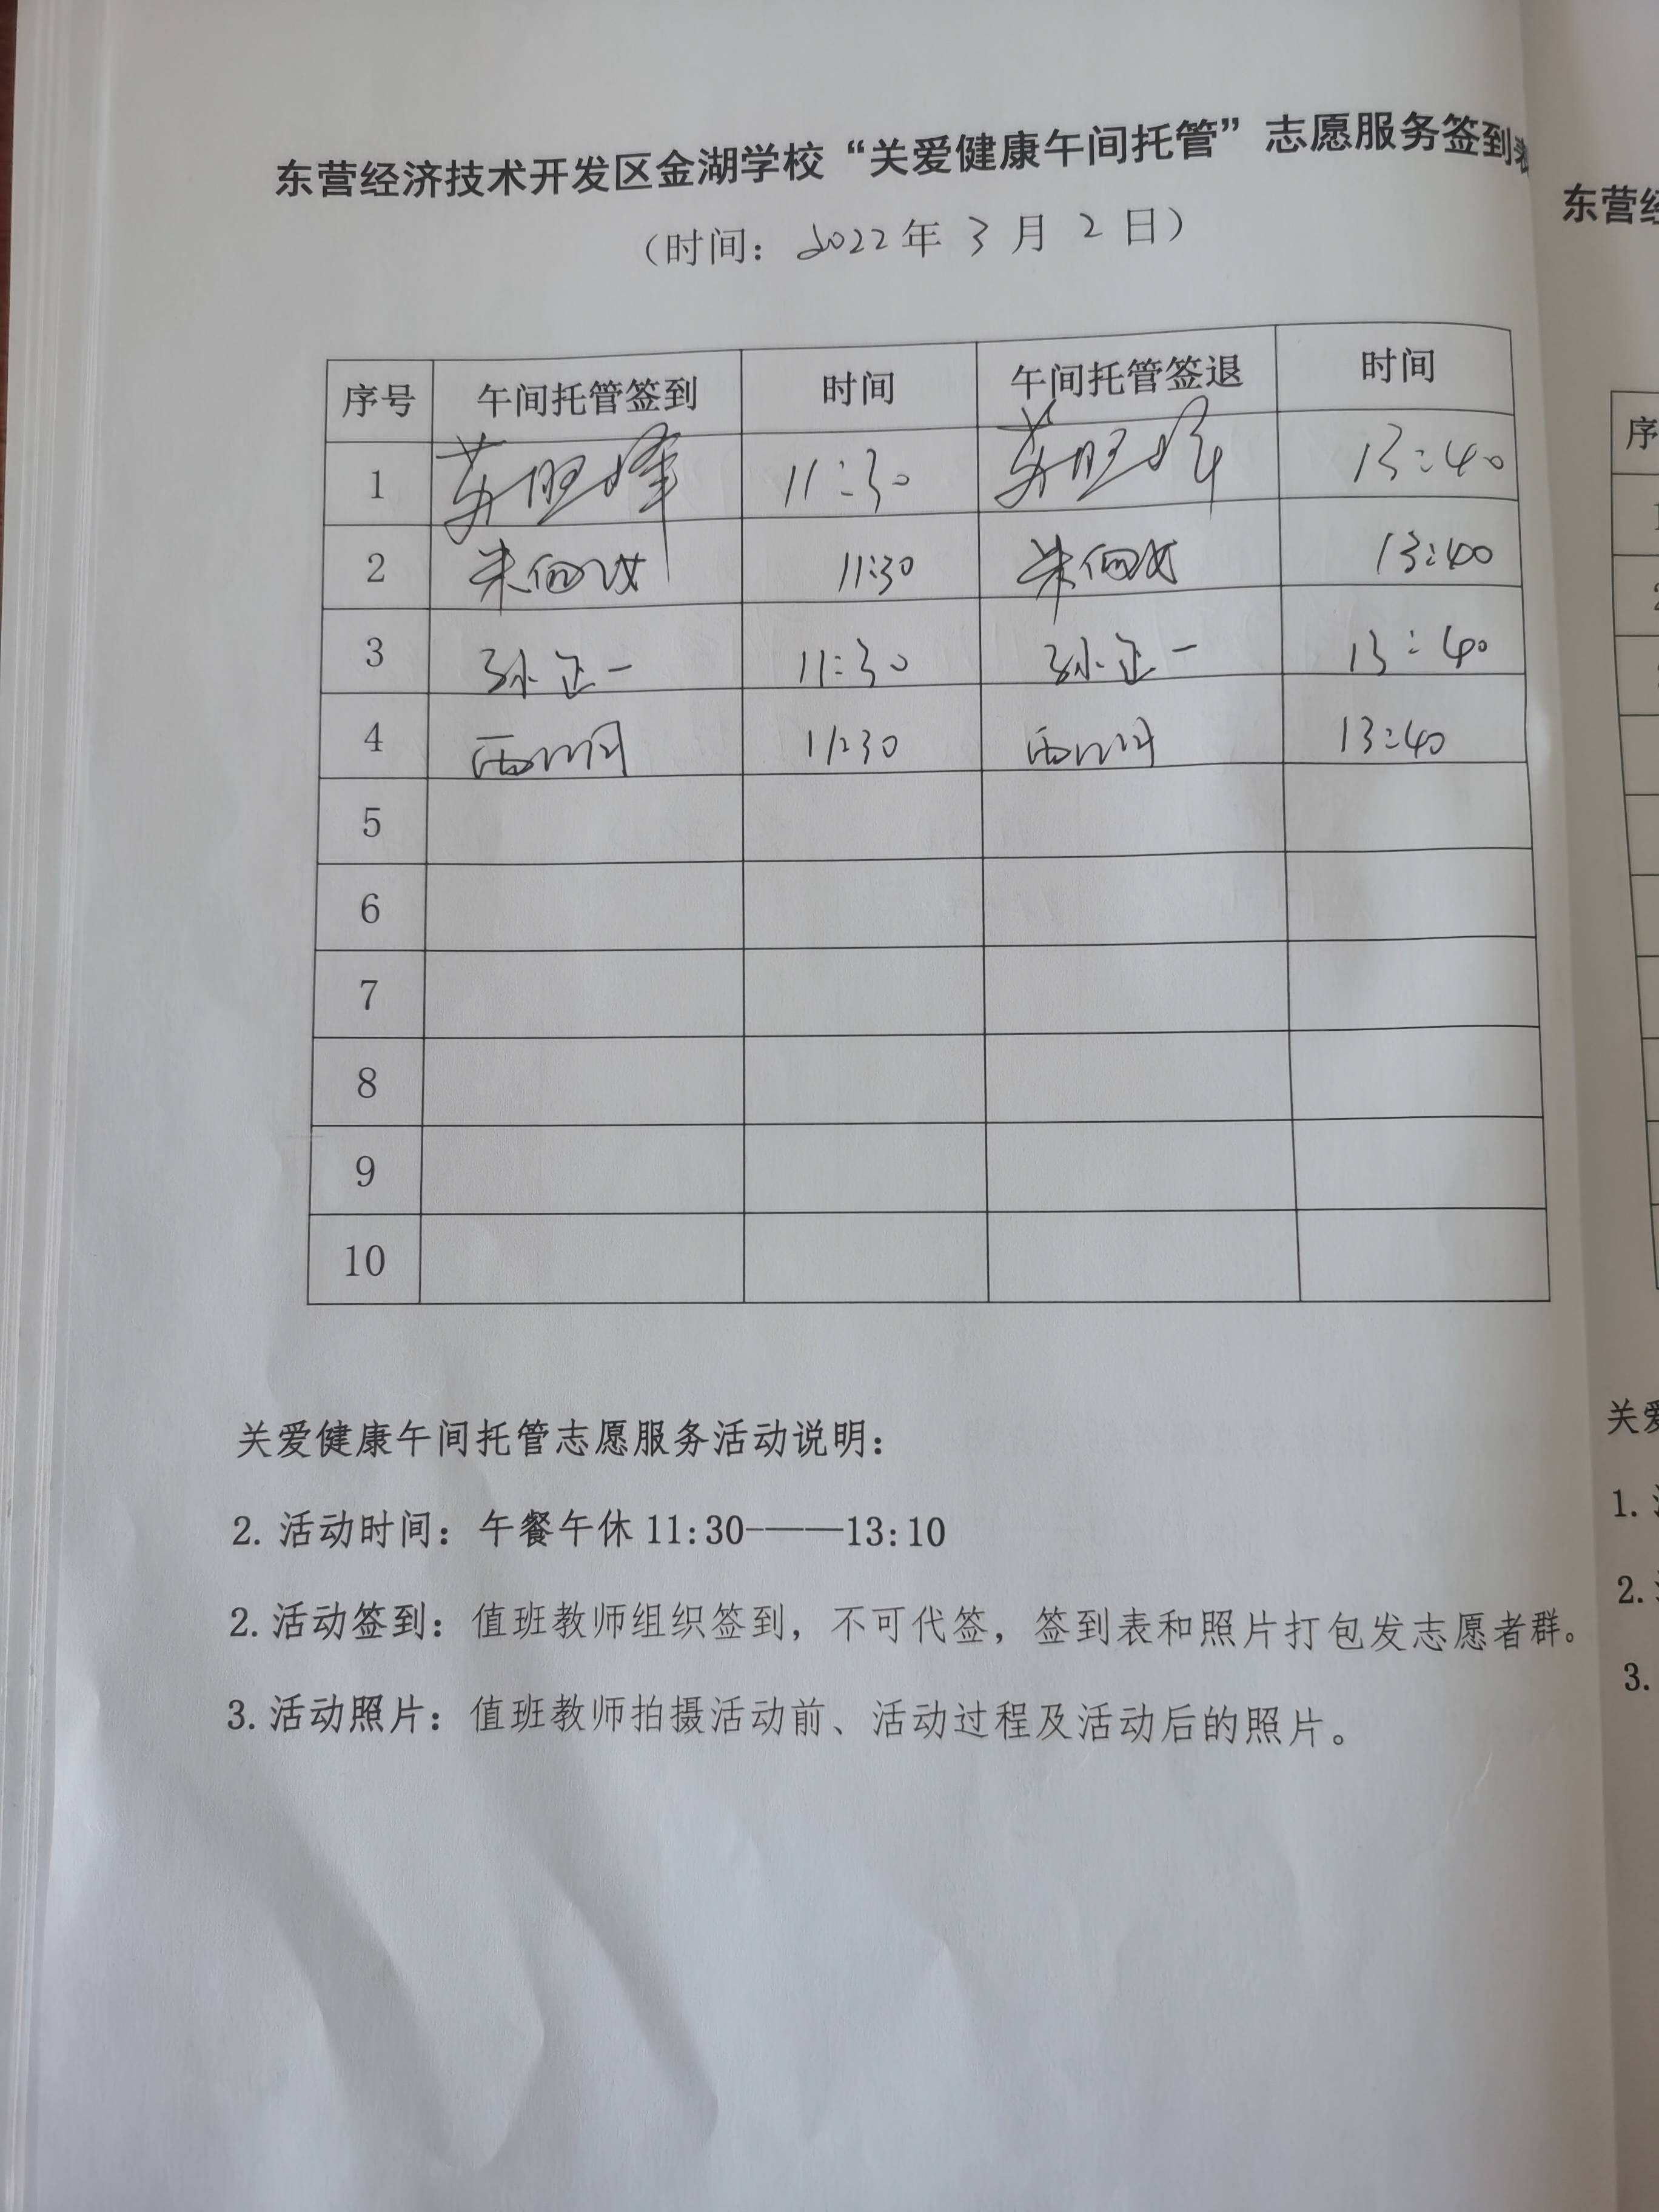 东营经济技术开发区金湖学校“关爱健康午间托管”志愿服务签到表
（时间：2022年3月2日）
序号 午间托管签到 时间 午间托管签退 时间
1 11:30 13:40
2 11:30 13:40
3 孙正一 11:30 孙正一 13:40
4 11:30 13:40
5
6
7
8
9
10
关爱健康午间托管志愿服务活动说明：
2. 活动时间：午餐午休 11:30-——13:10
2. 活动签到：值班教师组织签到，不可代签，签到表和照片打包发志愿者群。
3. 活动照片：值班教师拍摄活动前、活动过程及活动后的照片。
东营经
序
关爱
1.
2.
3.